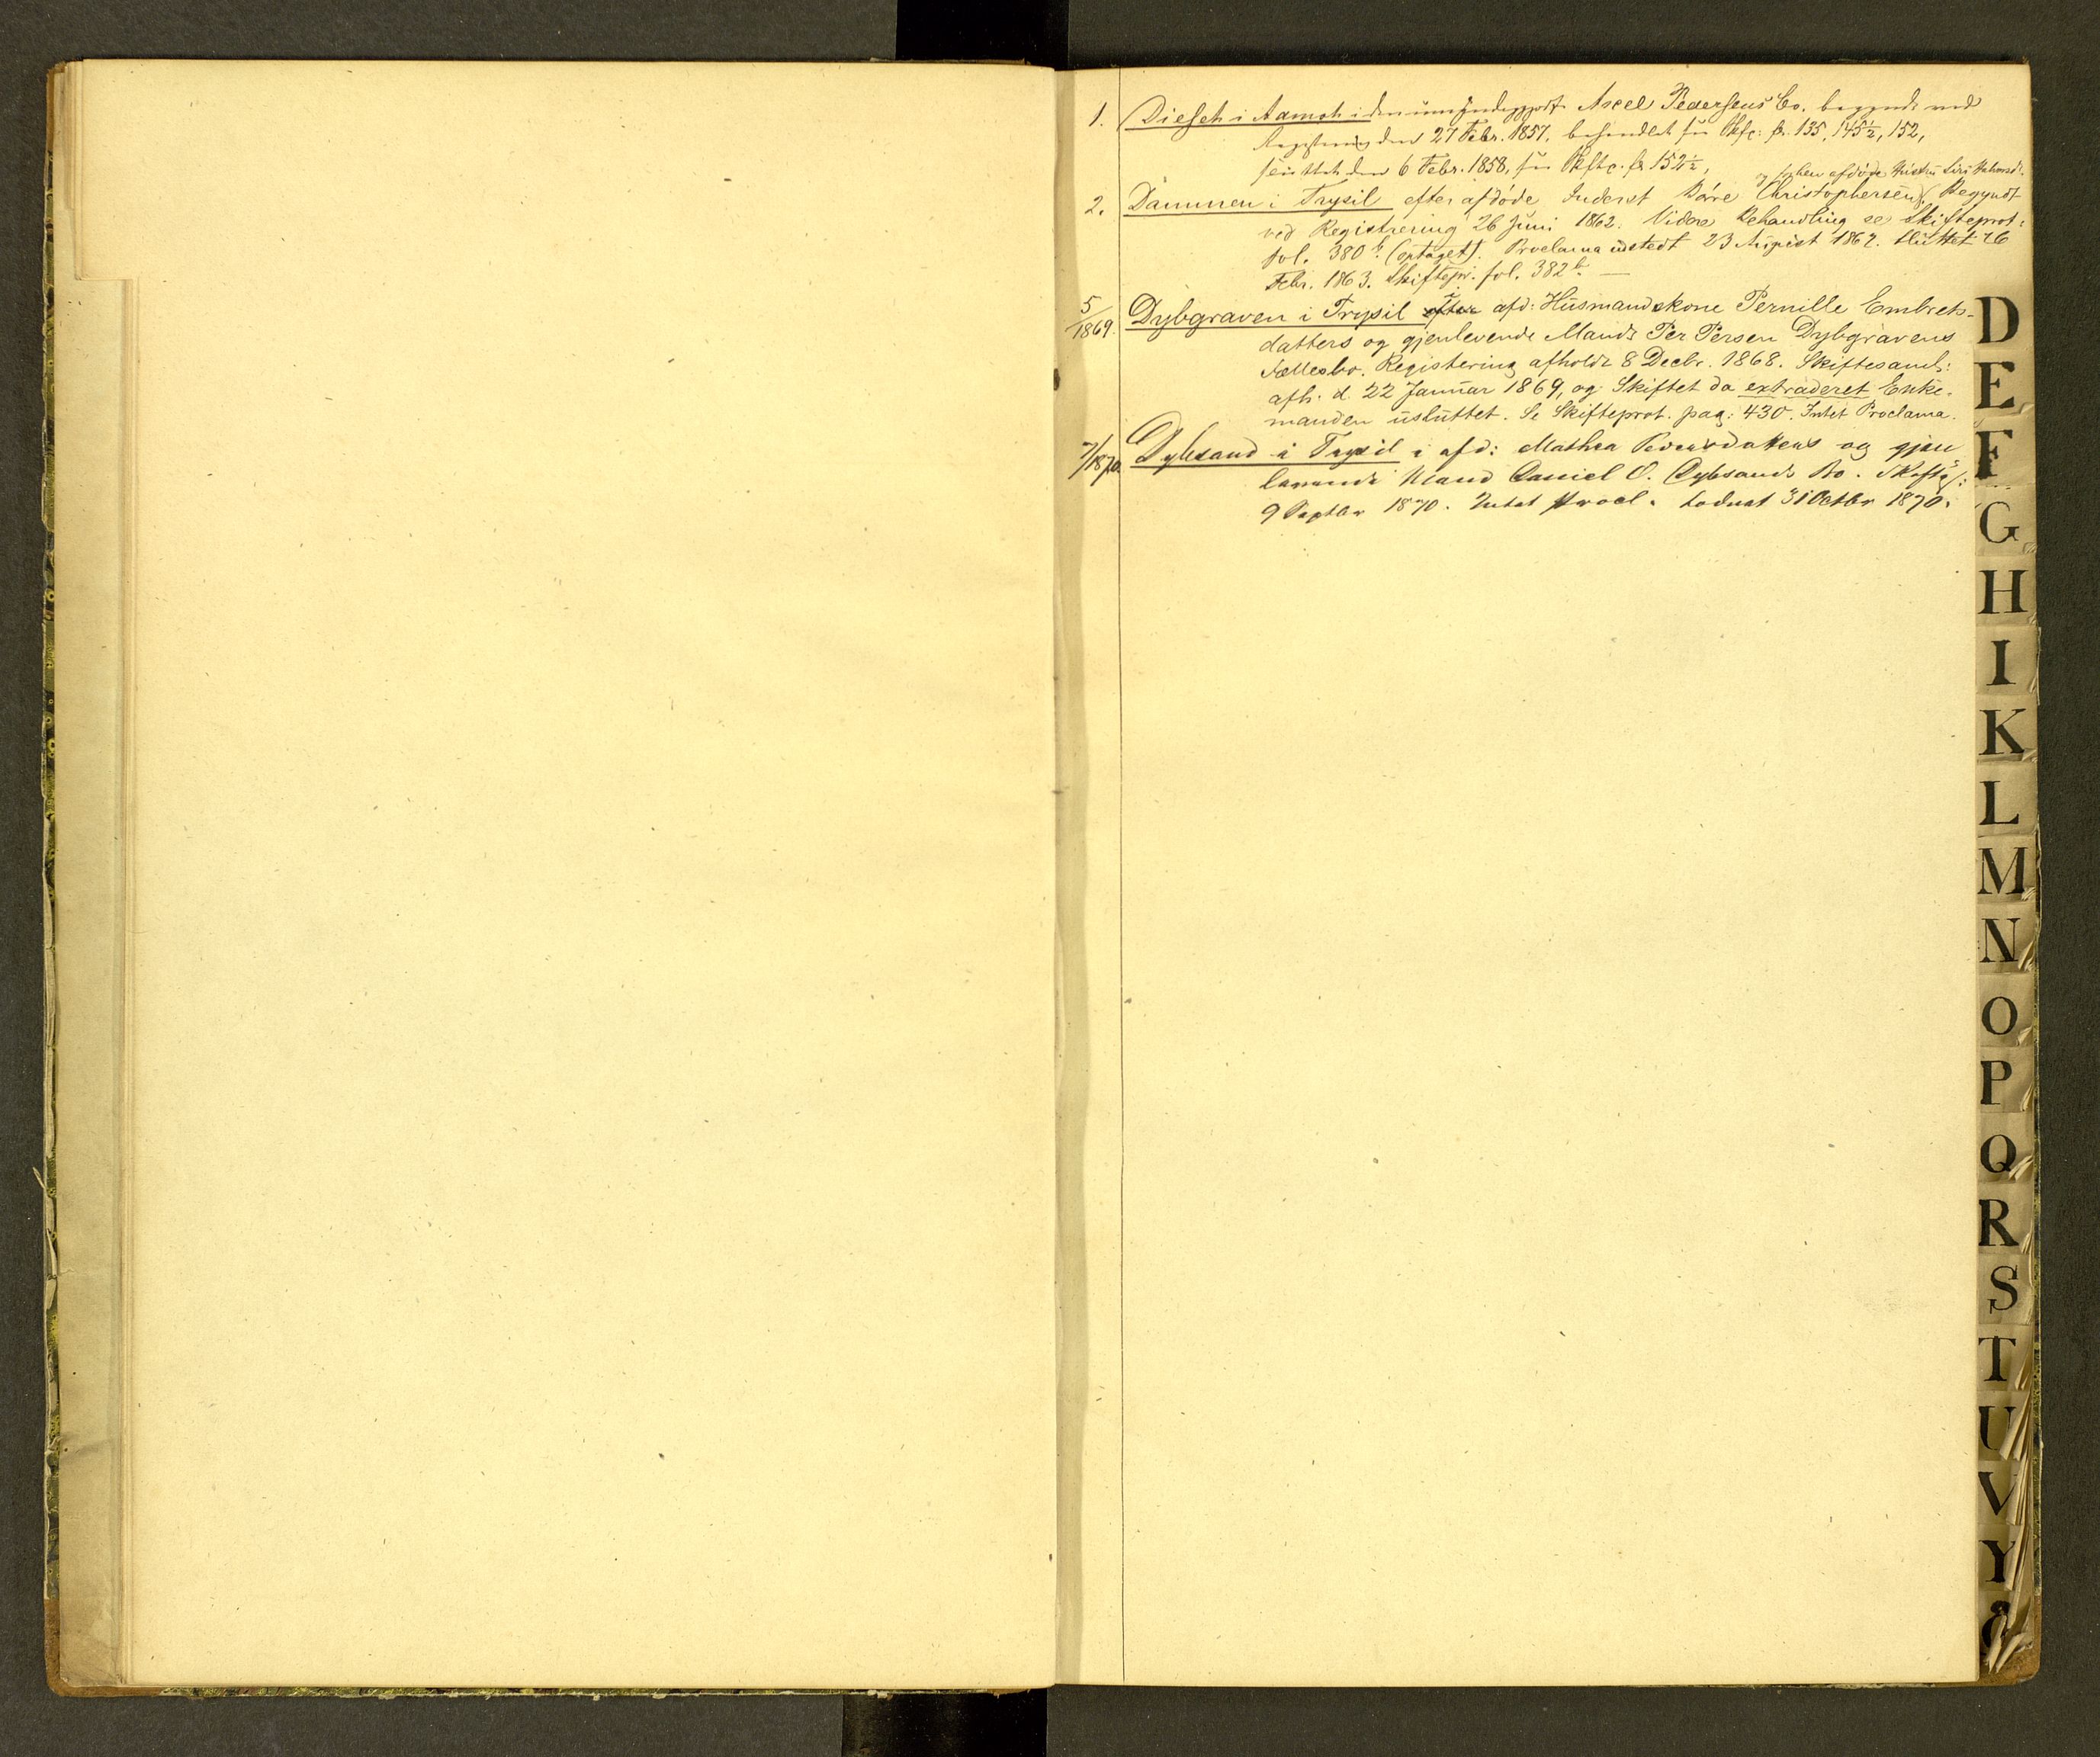 1. Dieseth i Aamoth i den umyndiggjorte Axel Pedersens Bo. begyndt ved
Registrering den 27 Febr. 1857. behandlet fra Skfc: fr. 135, 145½, 152,
sluttet den 6 Febr. 1858, fra Skftc. fr 152½,
og forhen afdøde Hustru Siri
2. Dammen i Trysil efter afdøde Inderst Børre Christophersen, Begyndt
ved Registrering 26 Juni 1862. Videre Behandling se Skifteprot:
fol. 380 b. (optaget). Proclama udstedt 23 August 1862. Sluttet 26
Febr. 1863. Skiftepr. fol. 382 b. —
5/1869. Dybgraven i Trysil efter afd: Husmandskone Pernille Embrets-
datters og gjenlevende Mands Per Persen Dybgravens
Fællesbo. Registering afholdt 8 Decbr. 1868. Skiftesaml:
afh. d. 22 Januar 1869, og Skiftet da extraderet Enke-
manden usluttet. Se Skifteprot. pag: 430. Intet Proclama.
7/1870 Dybsand i Trysil i afd: Mathea Pedersdatters og gjen
levende Mand Daniel O. Dybsands Bo.
9 Septbr 1870. Intet Procl. Loddet 31 Octbr 1870.
D
E
F
G
H
I
K
L
M
N
O
P
Q
R
S
T
U
V
Y